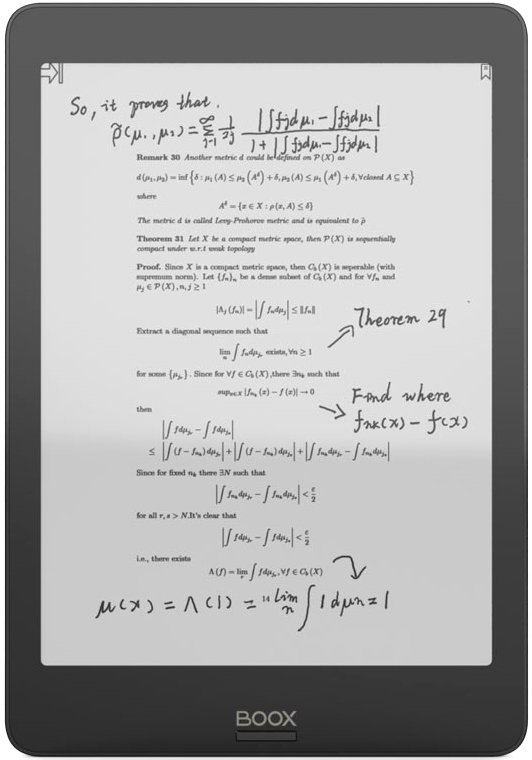 So, it proves that.
ρ̃(μ₁, μ₂) = ∑_{j=1}^{∞} 1/2j |∫fjdμ₁ − ∫fjdμ₂| / 1 + |∫fjdμ₁ − ∫fjdμ₂|
Remark 30 Another metric d could be defined on P(X) as
d(μ₁, μ₂) = inf {δ : μ₁(A) ≤ μ₂(A^δ) + δ, μ₂(A) ≤ μ₁(A^δ) + δ, ∀closed A ⊆ X}
where
A^δ = {x ∈ X : ρ(x, A) ≤ δ}
The metric d is called Levy-Prohorov metric and is equivalent to ρ̃
Theorem 31 Let X be a compact metric space, then P(X) is sequentially
compact under w.r.t weak topology
Proof. Since X is a compact metric space, then C_b(X) is seperable (with
supremum norm). Let {f_n}_n be a dense subset of C_b(X) and for ∀f_n and
μ_j ∈ P(X), n, j ≥ 1
|Λ_j(f_n)| = |∫ f_n dμ_j| ≤ ‖f_n‖
Theorem 29
Extract a diagonal sequence such that
lim_n ∫ f_n dμ_{j_r} exists, ∀n ≥ 1
for some {μ_{j_r}}. Since for ∀f ∈ C_b(X), there ∃n_k such that
sup_{x∈X} |f_{n_k}(x) − f(x)| → 0
Find where
f_{nk}(x) − f(x)
then
|∫ fdμ_{j_r} − ∫ fdμ_{j_s}|
≤ |∫ (f − f_{n_k}) dμ_{j_r}| + |∫ (f − f_{n_k}) dμ_{j_s}| + |∫ f_{n_k} dμ_{j_r} − ∫ f_{n_k} dμ_{j_s}|
Since for fixed n_k there ∃N such that
|∫ f_{n_k} dμ_{j_r} − ∫ f_{n_k} dμ_{j_s}| < ε/2
for all r, s > N.It's clear that
|∫ fdμ_{j_r} − ∫ fdμ_{j_s}| < ε/2
i.e., there exists
Λ(f) = lim_r ∫ fdμ_{j_r}, ∀f ∈ C_b(X)
μ(x) = Λ(1) = lim_n ∫ 1 dμn = 1
14
BOOX